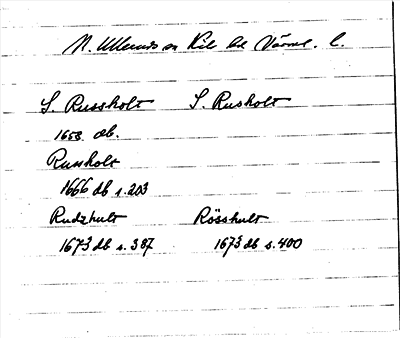 N. Ullerud sn Kil hd Värml. l.
S. Russholt S. Rusholt
1658 db.
Russholt
1666 db s. 203
Rudzhult Rösshult
1673 db s. 387 1673 db s. 400